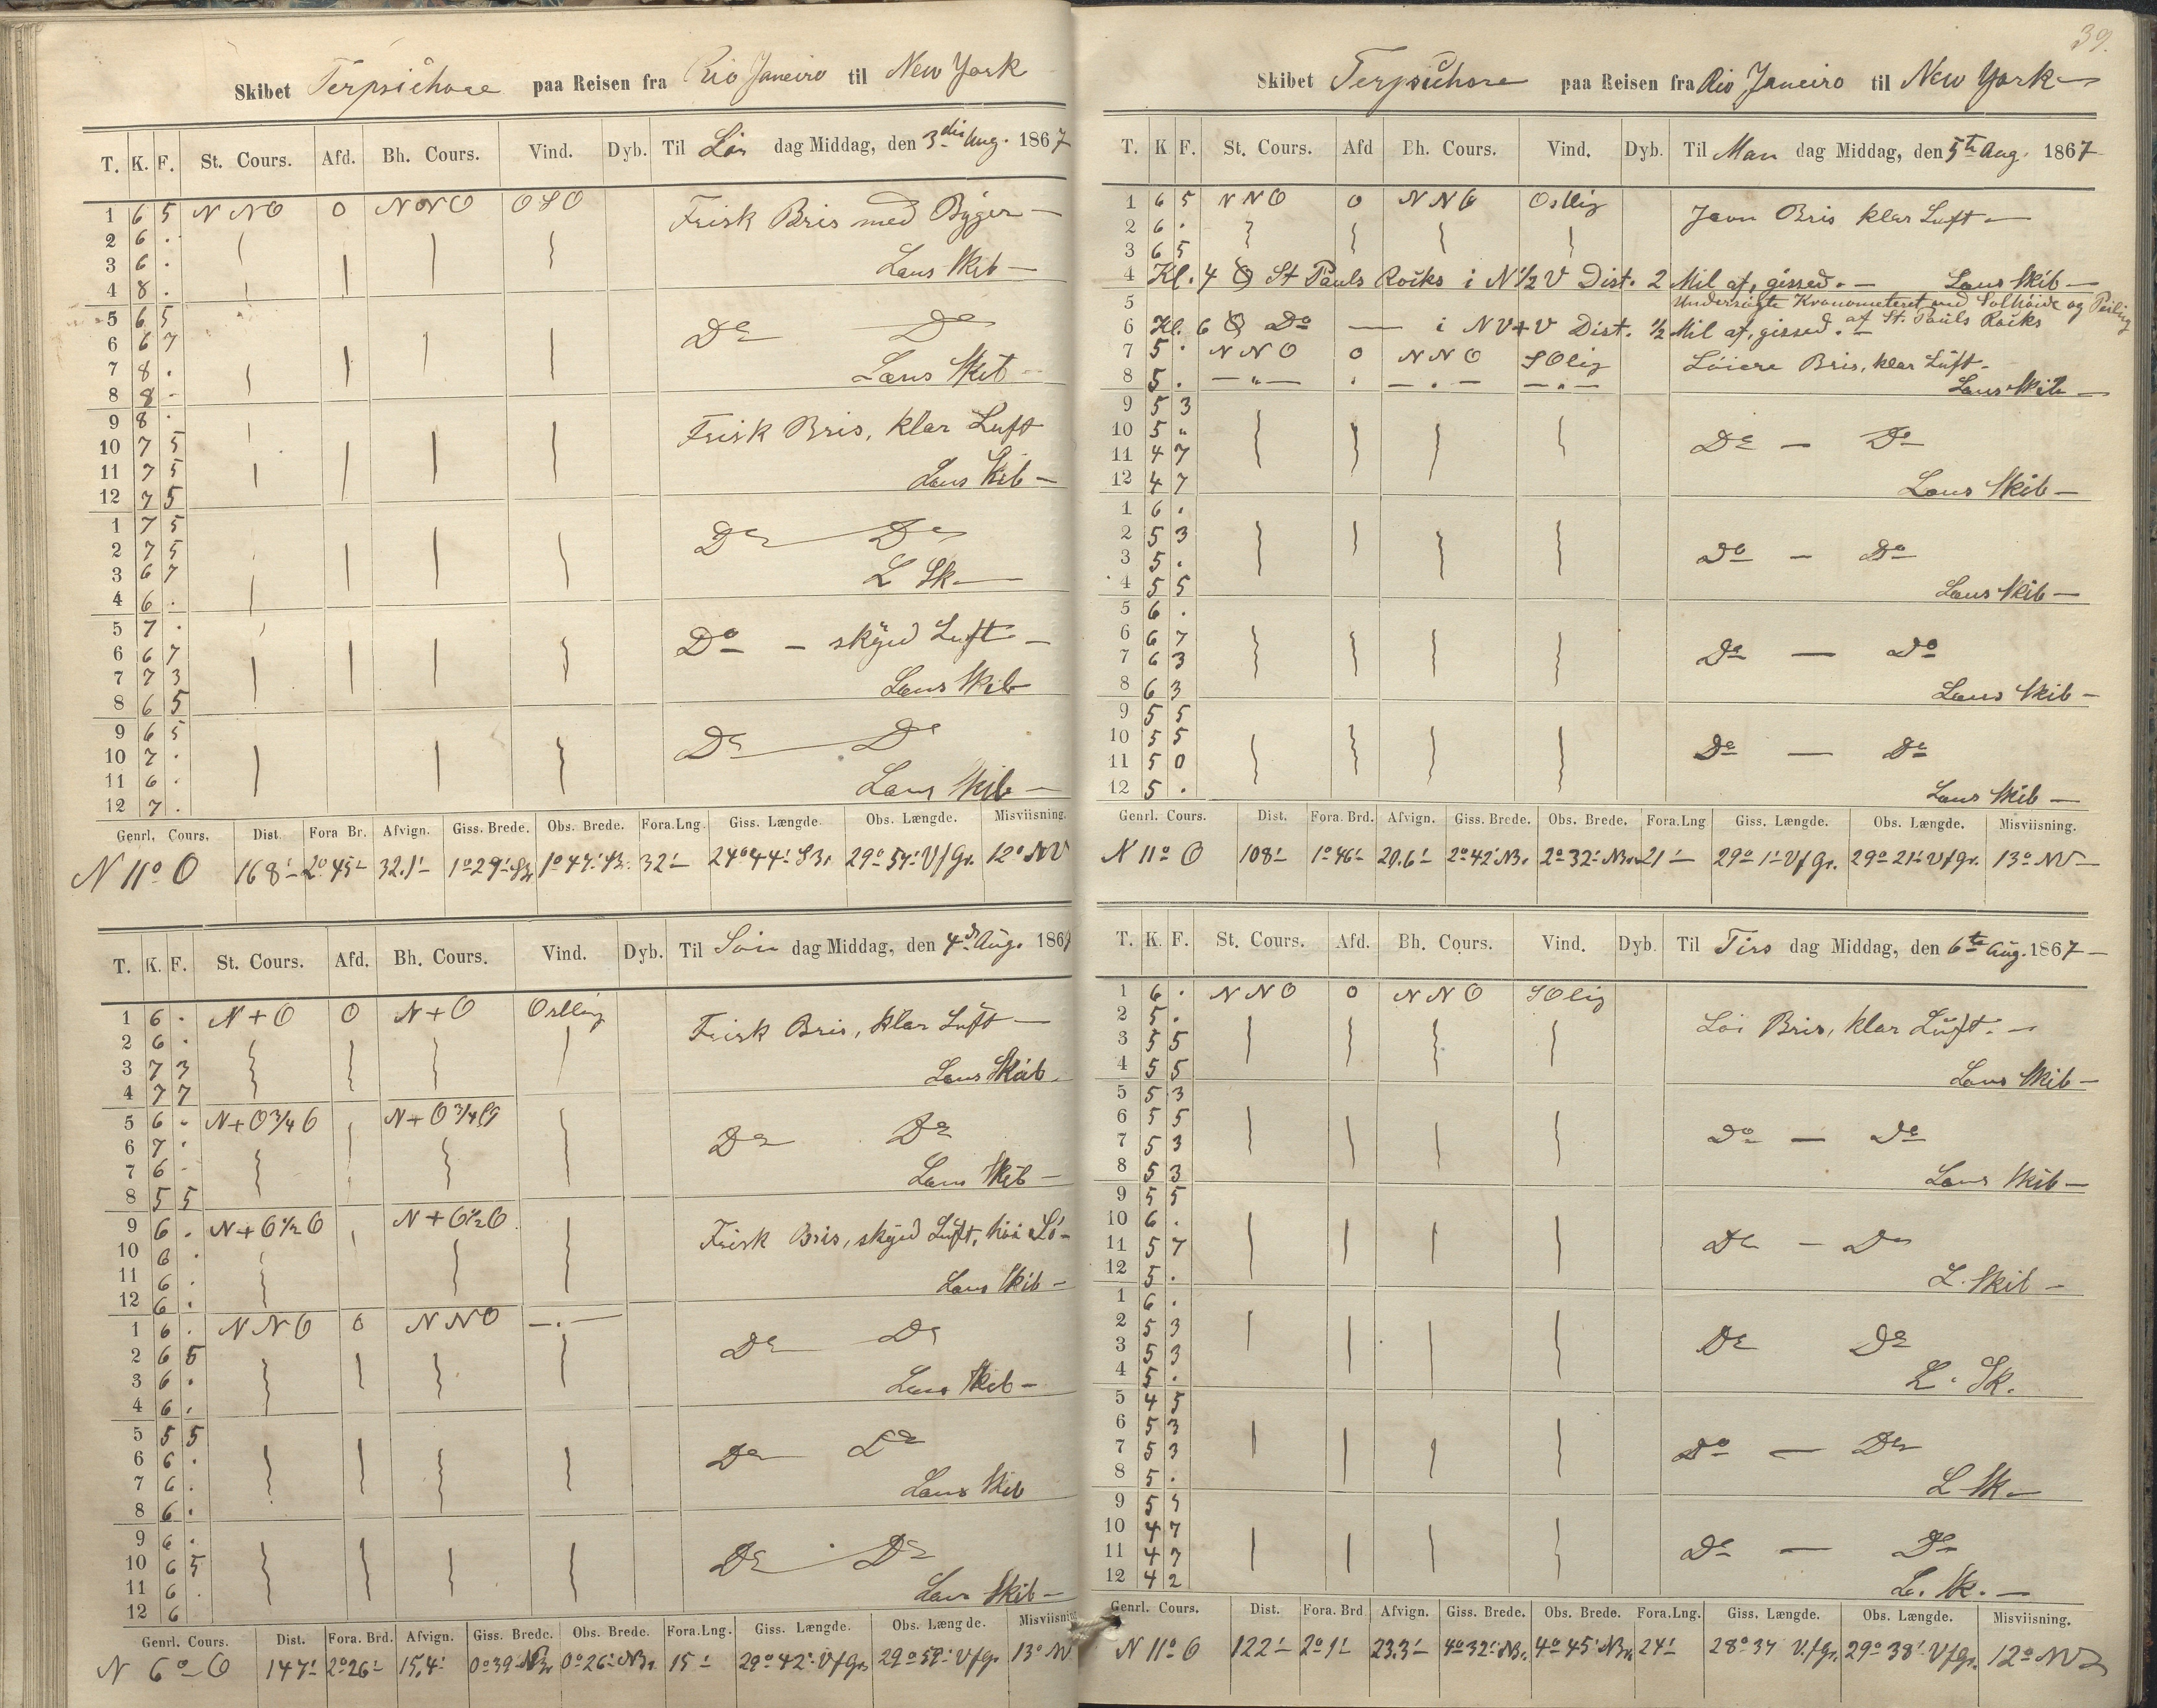 Skibet Terpsichore paa Reisen fra Rio Janeiro til New York
T. K. F. St. Cours. Afd. Bh. Cours. Vind. Dyb. Til Lør dag Middag, den 3die Aug. 1867
1 6 5 N N O 0 N N O O S O Frisk Bris med Byger —
2 6 .
3 6 . Læns Skib —
4 8 .
5 6 5
6 6 7 Do Do
7 8 . Læns Skib —
8 8 -
9 8 .
10 7 5 Frisk Bris, klar Luft
11 7 5
12 7 5 Læns Skib —
1 7 5
2 7 5 Do Do
3 6 7 L Sk —
4 6 .
5 7 .
6 6 7 Do — skyed Luft —
7 7 3
8 6 5 Læns Skib
9 6 5
10 7 . Do Do
11 6 .
12 7 . Læns Skib —
Genrl. Cours. Dist. Fora Br. Afvign. Giss. Brede. Obs. Brede. Fora.Lng. Giss. Længde. Obs. Længde. Misviisning.
N 11° O 168' 2° 45' 32.1' 1° 29' SBr 1° 47' SBr. 32' 29° 54' V f Gr. 12° NV
T. K. F. St. Cours. Afd. Bh. Cours. Vind. Dyb. Til Søn dag Middag, den 4de Aug. 1867
1 6 . N + O 0 N + O Ostlig Frisk Bris, klar Luft —
2 6 .
3 7 3 Læns Skib
4 7 7
5 6 - N + O 3/4 O N + O 3/4 O
6 7 . Do Do
7 6 - Læns Skib —
8 5 5
9 6 . N + O 1/2 O N + O 1/2 O Frisk Bris, skyed Luft, høi Sø —
10 6 .
11 6 . Læns Skib —
12 6 .
1 6 . N N O 0 N N O — . —
2 6 5 Do Do
3 6 . Læns Skib —
4 6 .
5 5 5
6 6 . Do Do
7 6 . Læns Skib
8 6 .
9 6 .
10 6 5 Do Do
11 6 . Læns Skib —
12 6
Genrl. Cours. Dist. Fora. Brd. Afvign. Giss. Brede. Obs. Brede. Fora.Lng. Giss. Længde. Obs. Længde. Misviisning
N 6° O 147' 2° 26' 15,4' 0° 39' NBr 0° 26' NBr 15' 29° 42' V f Gr. 29° 59' V f Gr. 13° NV
39.
Skibet Terpsichore paa Reisen fra Rio Janeiro til New York —
T. K F. St. Cours. Afd Bh. Cours. Vind. Dyb. Til Man dag Middag, den 5te Aug. 1867
1 6 5 N N O 0 N N O Ostlig Jevn Bris klar Luft —
2 6 .
3 6 5
4 Kl. 4 St Pauls Rocks i N 1/2 V Dist. 2 Mil af, gisset. — Læns Skib —
5 Undersøgte Kronometeret med Solhøide og Peiling
6 Kl. 6 Do — i NV + V Dist. 1/2 Mil af, gisset. — af St. Pauls Rocks
7 5 . N N O 0 N N O SOlig Løiere Bris, klar Luft —
8 5 . — „ — . — . — — . — Læns Skib —
9 5 3
10 5 „ Do — Do
11 4 7
12 4 7 Læns Skib —
1 6 .
2 5 3 Do — Do
3 5 .
4 5 5 Læns Skib —
5 6 .
6 6 7 Do — Do
7 6 3
8 6 3 Læns Skib —
9 5 5
10 5 5 Do — Do
11 5 0
12 5 . Læns Skib —
Genrl. Cours. Dist. Fora. Brd. Afvign. Giss. Brede. Obs. Brede. Fora.Lng Giss. Længde. Obs. Længde. Misviisning.
N 11° O 108' 1° 46' 20.6' 2° 42' NBr. 2° 32' NBr. 21' 29° 1' V f Gr. 29° 21' V f Gr. 13° NV —
T. K. F. St. Cours. Afd. Bh. Cours. Vind. Dyb. Til Tirs dag Middag, den 6te Aug. 1867 —
1 6 . N N O 0 N N O SOlig
2 5 . Løi Bris, klar Luft. —
3 5 5
4 5 5 Læns Skib —
5 5 3
6 5 5 Do — Do
7 5 3
8 5 3 Læns Skib —
9 5 5
10 6 .
11 5 7 Do — Do
12 5 . L. Skib —
1 6 .
2 5 3 Do Do
3 5 3
4 5 . L. Sk.
5 4 5
6 5 3
7 5 3 Do — Do
8 5 . L Sk —
9 5 5
10 4 7
11 4 7 Do — Do
12 4 2 L. Sk. —
Genrl. Cours. Dist. Fora. Brd Afvign. Giss. Brede. Obs. Brede. Fora.Lng. Giss. Længde. Obs. Længde. Misviisning.
N 11° O 122' 2° 1' 23.3' 4° 32' NBr. 4° 45' NBr 24' 28° 37 V. f Gr. 29° 38' V f Gr. 12° NV